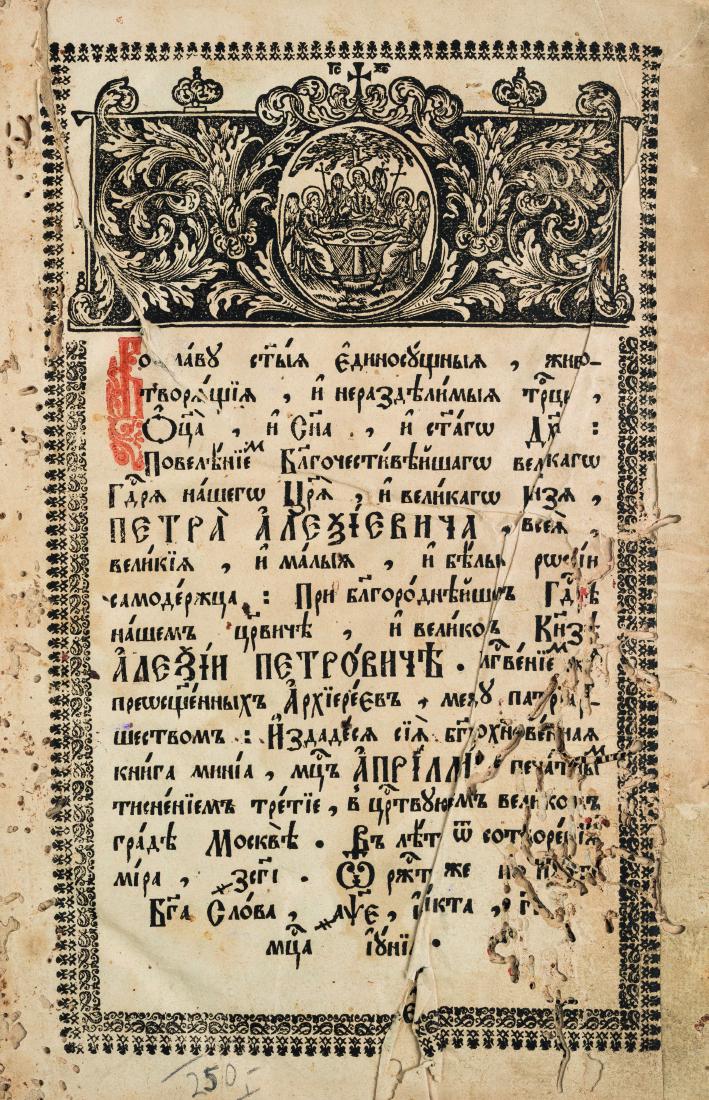 І҃С Х҃С
Во сла́вꙋ ст҃ы́ѧ є҆диносꙋ́щныѧ , живо-
творѧ́щїѧ , и҆ нераздѣли́мыѧ трⷪ҇цы ,
Ѻ҆ц҃а̀ , и҆ Сн҃а , и҆ ст҃а́гѡ Дх҃а :
Повелѣ́нїемъ Бл҃гочести́вѣйшагѡ вели́кагѡ
Гдⷭ҇рѧ на́шегѡ Цр҃ѧ̀ , и҆ вели́кагѡ Кнѧ́зѧ ,
ПЕТРА̀ А҆ЛЕѮІ́ЕВИЧА , всеѧ̀ ,
вели́кїѧ , и҆ ма́лыѧ , и҆ бѣ́лыѧ рѡссі́и
самоде́ржца : При бл҃горо́днѣйшемъ Гдⷭ҇рѣ
на́шемъ цр҃е́вичѣ , и҆ вели́комъ Кнѧ́зѣ
А҆ЛЕѮІ́И ПЕТРО́ВИЧѢ .
преѡсщ҃е́нныхъ А҆рхїере́євъ , меж̾дꙋ патрїа́р-
шествомъ : И҆здаде́сѧ сїѧ̀ бг҃одꙋхнове́ннаѧ
кни́га минїа , мцⷭ҇ъ А҆ПРІ́ЛЛЇЙ печа́тнымъ
тисне́нїемъ тре́тїе , в̾ црⷭ҇твꙋющемъ вели́комъ
гра́дѣ Москвѣ̀ . Въ лѣ́то ѿ сотворе́нїѧ
мі́ра , ҂зс҃гі . Ѿ ржⷭ҇тва́ же
Бг҃а Сло́ва , ҂аѱ҃є , і҆ндїкта , гі
мцⷭ҇а і҆ꙋ́нїѧ .
250 I